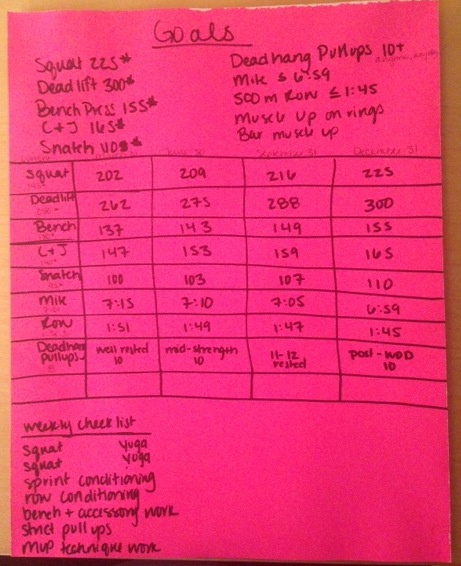 Goals
Squat 225#
Deadlift 300#
Bench Press 155#
C+J 165#
Snatch 110#
Deadhang Pullups 10+
Mile ≤ 6:59
500m Row ≤ 1:45
Muscle Up on rings
Bar muscle up
September 31 December 31
Squat 202 209 216 225
Deadlift 262 275 288 300
Bench 137 143 149 155
C+J 147 153 159 165
Snatch 100 103 107 110
Mile 7:15 7:10 7:05 6:59
Row 1:51 1:49 1:47 1:45
Deadhang pullups well rested 10 mid-strength 10 11-12 rested post-WOD 10
weekly checklist
Squat Yoga
Squat Yoga
sprint conditioning
row conditioning
bench + accessory work
strict pullups
mup technique work